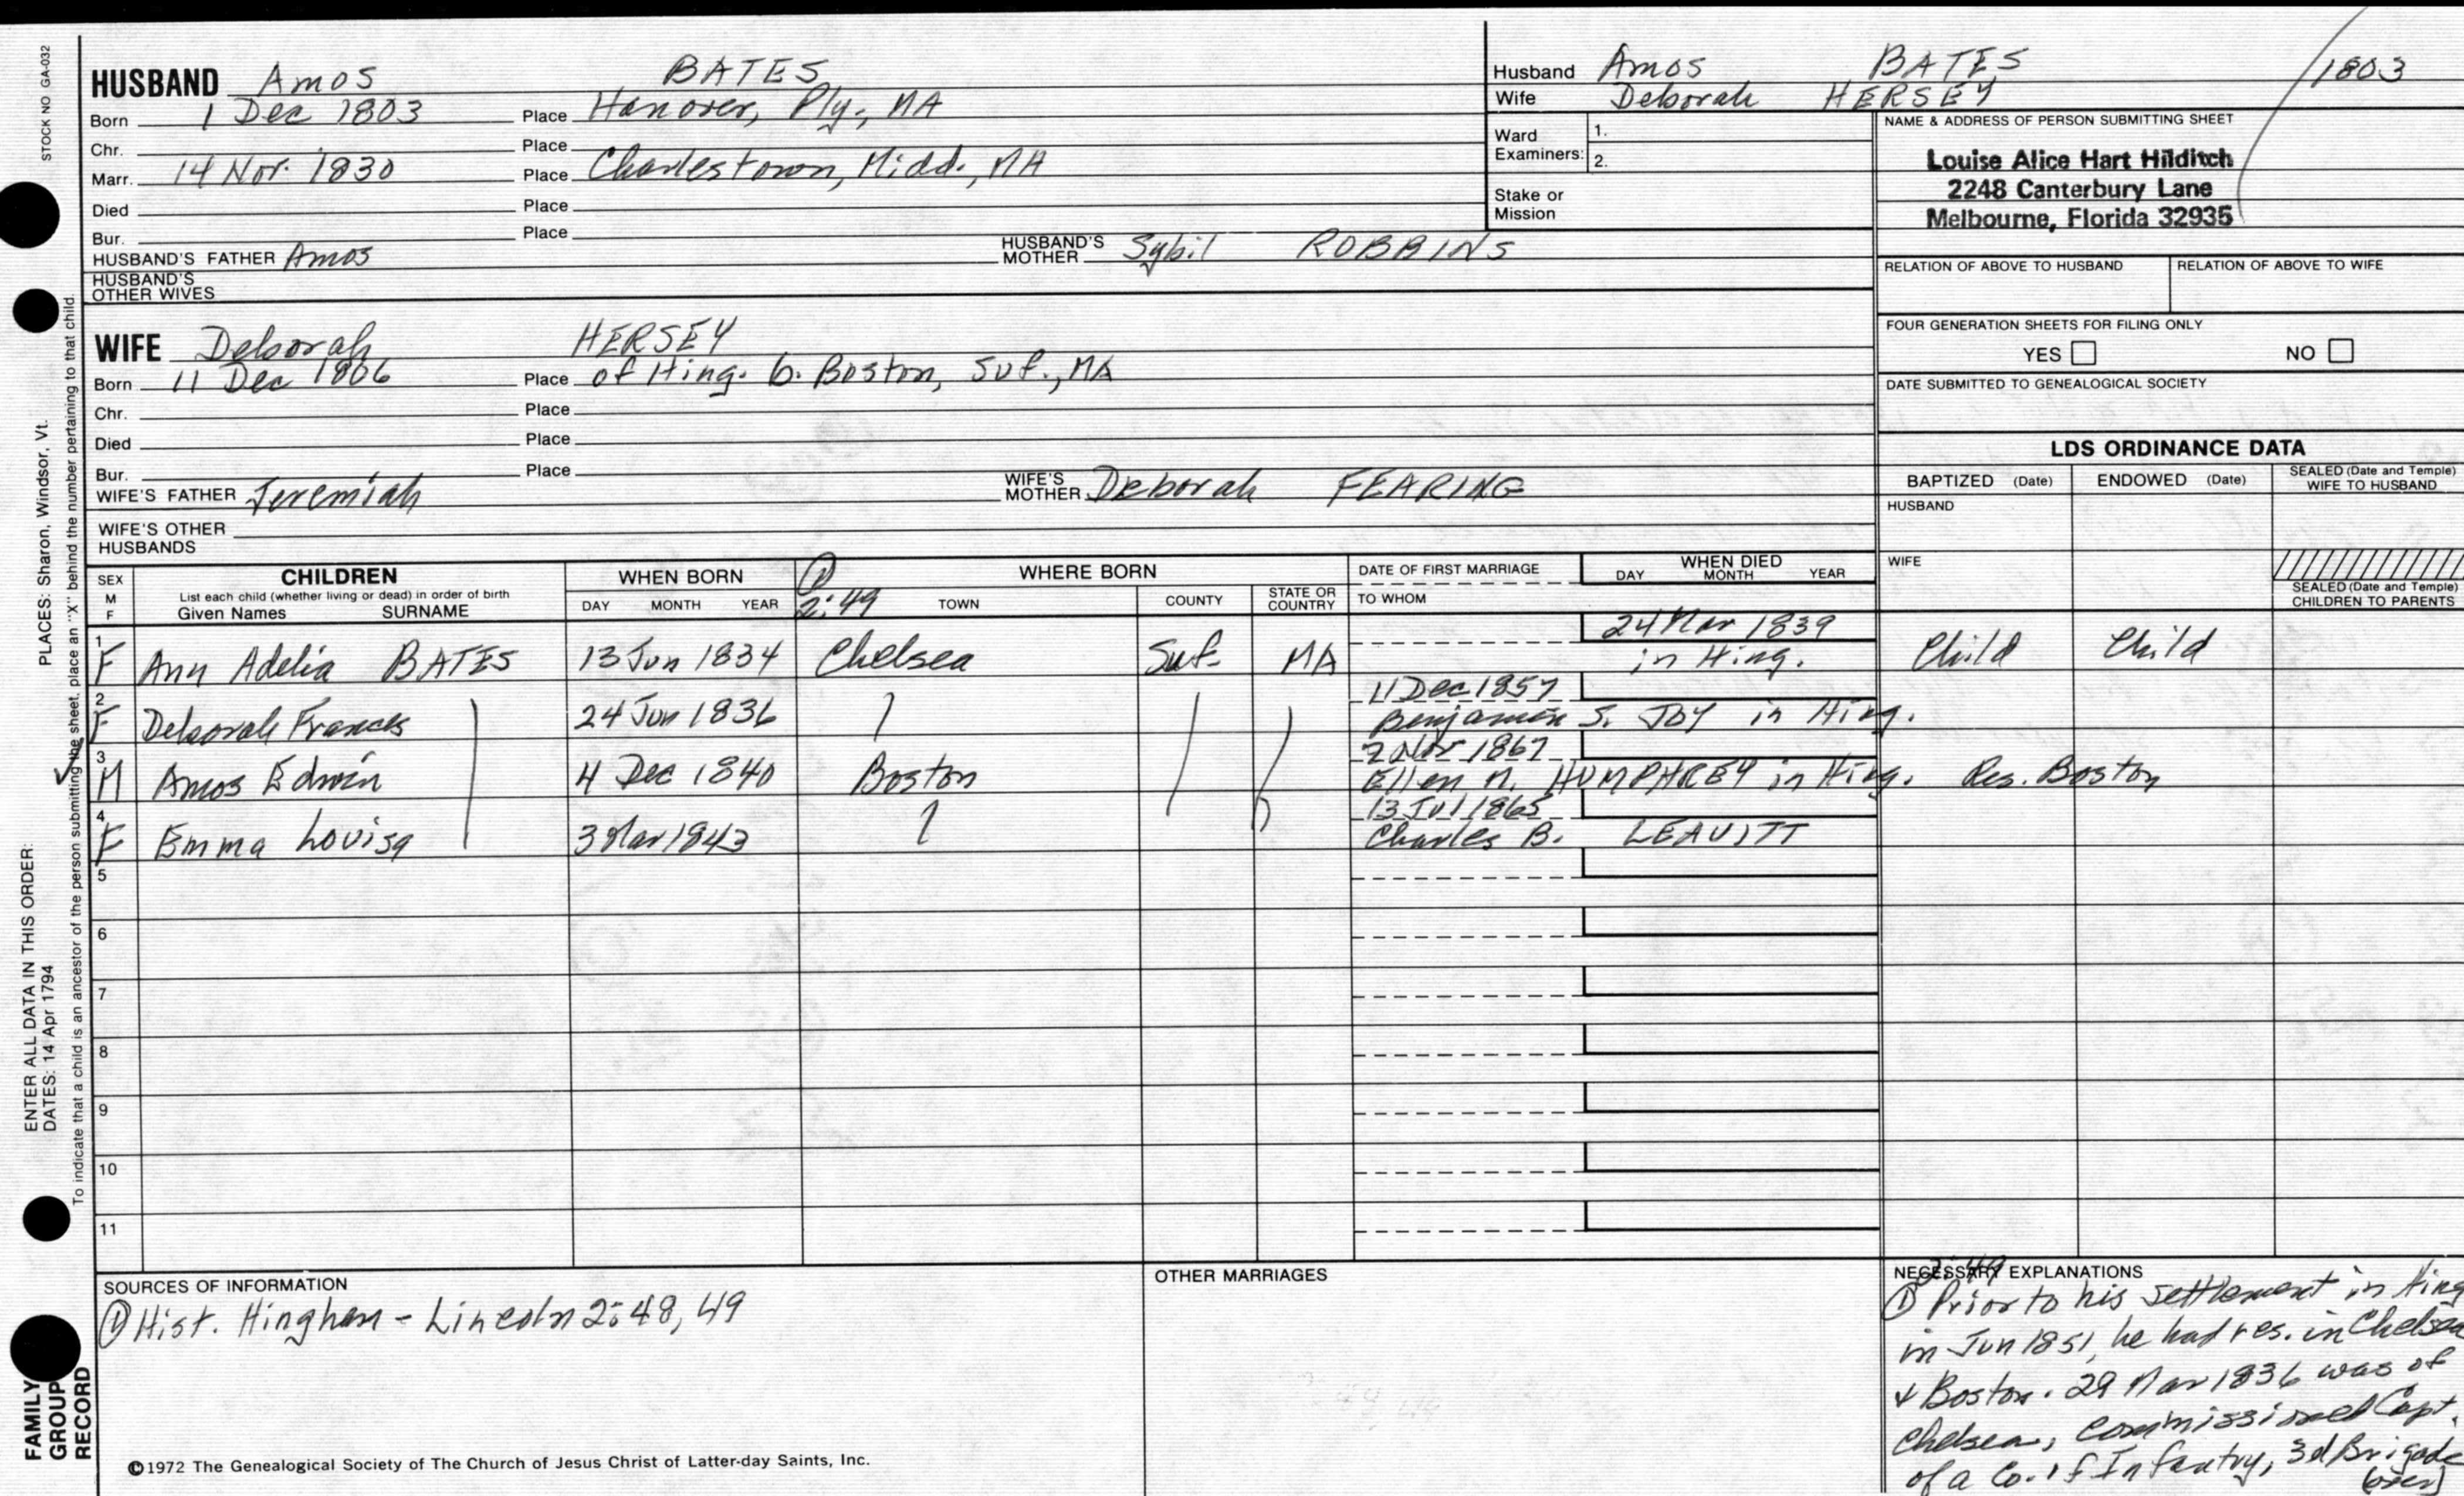 STOCK NO GA-032
HUSBAND Amos BATES
Born 1 Dec 1803 Place Hanover, Ply., MA
Chr. Place
Marr. 14 Nov. 1830 Place Charlestown, Midd., MA
Died Place
Bur. Place
HUSBAND'S FATHER Amos HUSBAND'S MOTHER Sybil ROBBINS
HUSBAND'S OTHER WIVES
WIFE Deborah HERSEY
Born 11 Dec 1806 Place of Hing. b. Boston, Suf., MA
Chr. Place
Died Place
Bur. Place
WIFE'S FATHER Jeremiah WIFE'S MOTHER Deborah FEARING
WIFE'S OTHER HUSBANDS
Husband Amos BATES 1803
Wife Deborah HERSEY
Ward Examiners: 1.
2.
Stake or Mission
NAME & ADDRESS OF PERSON SUBMITTING SHEET
Louise Alice Hart Hilditch
2248 Canterbury Lane
Melbourne, Florida 32935
RELATION OF ABOVE TO HUSBAND RELATION OF ABOVE TO WIFE
FOUR GENERATION SHEETS FOR FILING ONLY
YES NO
DATE SUBMITTED TO GENEALOGICAL SOCIETY
LDS ORDINANCE DATA
BAPTIZED (Date) ENDOWED (Date) SEALED (Date and Temple) WIFE TO HUSBAND
HUSBAND
WIFE
SEALED (Date and Temple) CHILDREN TO PARENTS
SEX M F
CHILDREN
List each child (whether living or dead) in order of birth
Given Names SURNAME
WHEN BORN
DAY MONTH YEAR
① 2:49
WHERE BORN
TOWN COUNTY STATE OR COUNTRY
DATE OF FIRST MARRIAGE
TO WHOM
WHEN DIED
DAY MONTH YEAR
24 Mar 1839
1 F Ann Adelia BATES 13 Jun 1834 Chelsea Suf. MA in Hing. Child Child
11 Dec 1857
2 F Deborah Frances 24 Jun 1836 Benjamin S. JOY in Hing.
2 Nov 1867
3 M Amos Edwin 4 Dec 1840 Boston Ellen N. HUMPHREY in Hing. Res. Boston
13 Jul 1865
4 F Emma Louisa 3 Mar 1843 Charles B. LEAVITT
5
6
7
8
9
10
11
SOURCES OF INFORMATION
① Hist. Hingham - Lincoln 2:48, 49
OTHER MARRIAGES
NECESSARY EXPLANATIONS
2:49
① Prior to his settlement in Hing
in Jun 1851, he had res. in Chelsea
& Boston. 29 Mar 1836 was of
Chelsea, commissioned Capt.
of a Co. of Infantry, 3d Brigade
(over)
PLACES: Sharon, Windsor, Vt.
ENTER ALL DATA IN THIS ORDER:
DATES: 14 Apr 1794
To indicate that a child is an ancestor of the person submitting the sheet, place an "X" behind the number pertaining to that child.
FAMILY GROUP RECORD
©1972 The Genealogical Society of The Church of Jesus Christ of Latter-day Saints, Inc.